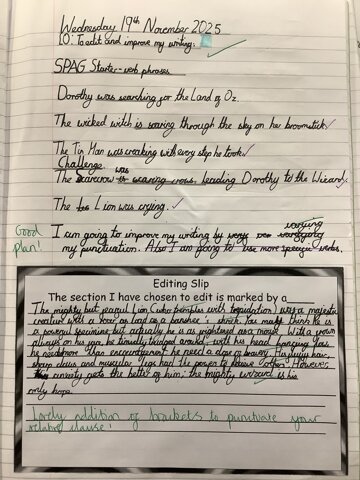 Wednesday 19th November 2025
LO: To edit and improve my writing.
SPAG Starter - verb phrases
Dorothy was searching for the Land of Oz.
The wicked witch is soaring through the sky on her broomstick.
The Tin Man was creaking with every step he took.
Challenge.
The Scarecrow was leading Dorothy to the Wizard.
The Lion was crying.
Good plan!
I am going to improve my writing by varying
my punctuation. Also I am going to use more speech verbs.
Editing Slip
The section I have chosen to edit is marked by a
The mighty but fearful Lion (who trembles with trepidation) was a majestic
creature with a roar as loud as a banshee's shriek. You might think he is
a powerful specimen but actually he is as frightened as a mouse. With a frown
always on his face, he timidly trudged around with his head hanging low.
he needs more than encouragement he need a dose of bravery. His
sharp claws and muscular legs had the power to others. However,
anxiety gets the better of him; the mighty wizard is his
only hope.
Lovely addition of brackets to punctuate your
relative clause!